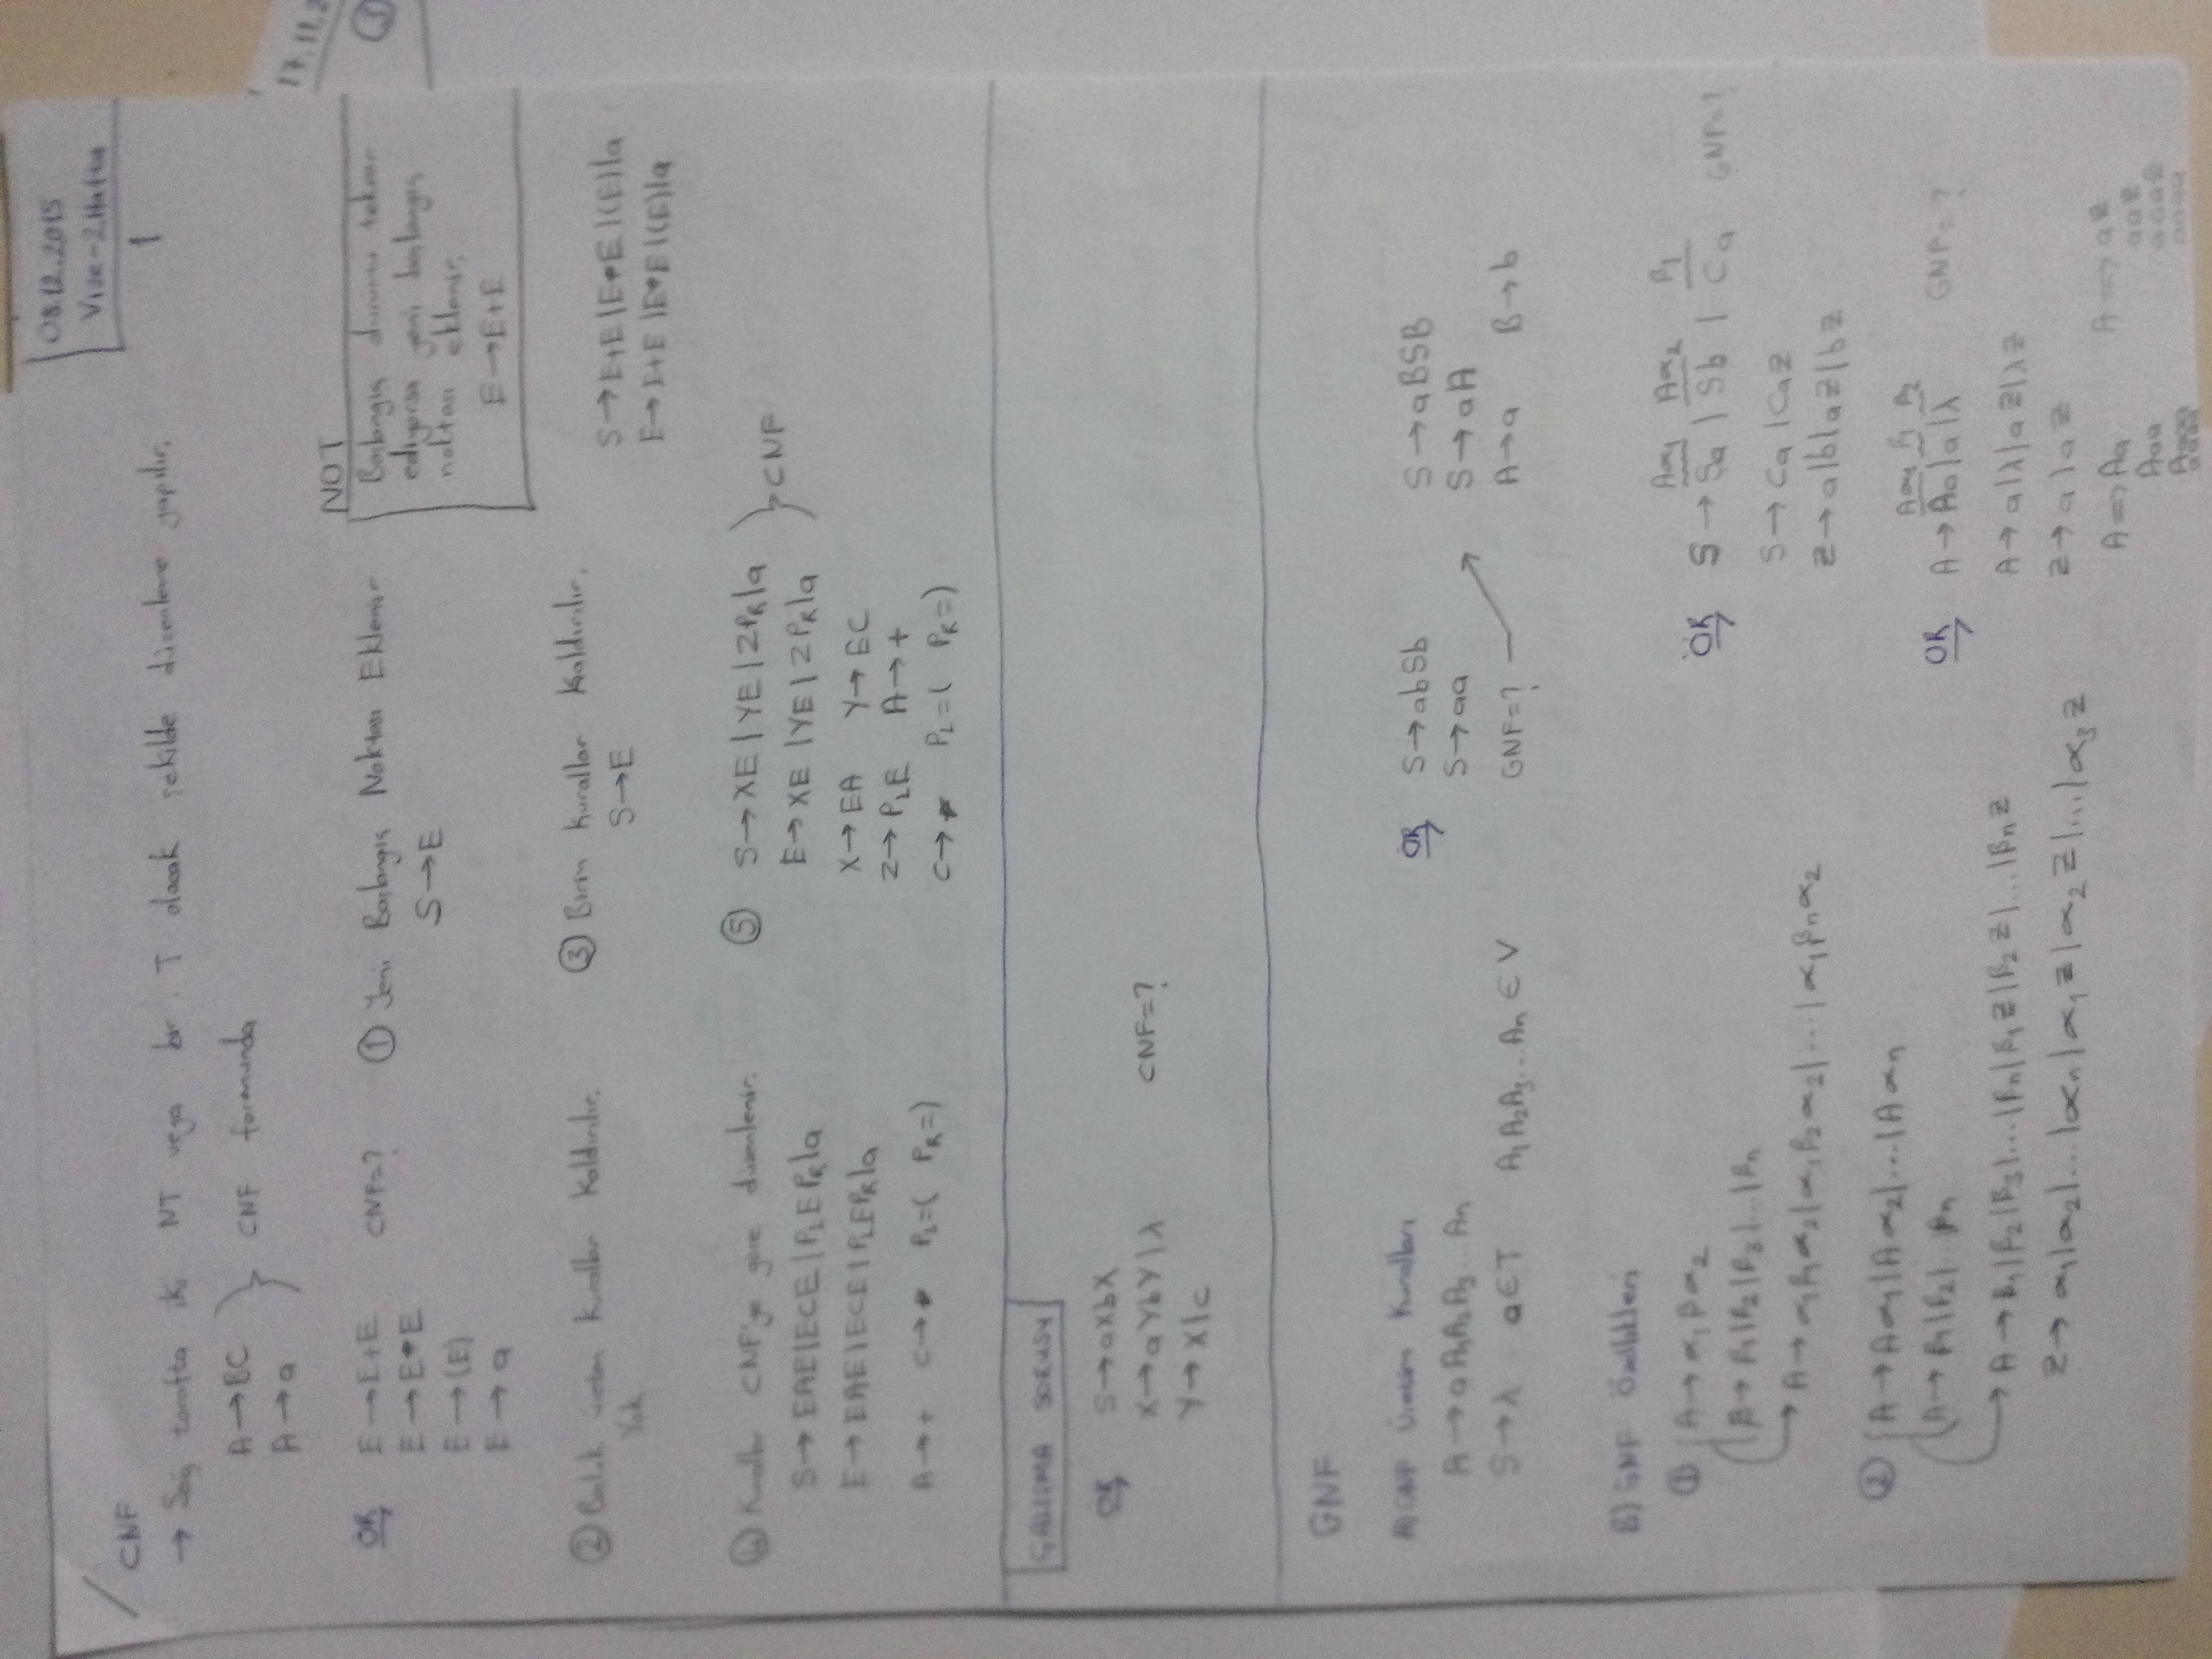 08.12.2015
Vize-2.Hafta
1
CNF
→ Sağ tarafta iki NT veya bir T olacak şekilde düzenleme yapılır.
A→BC
A→a
} CNF formunda
17.11.2
ÖR
E→E+E
E→E*E
E→(E)
E→a
CNF=?
① Yeni Başlangıç Noktası Eklenir
S→E
NOT
Başlangıç durumu tekrar
ediyorsa yeni başlangıç
noktası eklenir.
E→E+E
② Batık üreten Kurallar Kaldırılır.
Yok
③ Birim Kurallar Kaldırılır.
S→E
S→E+E|E*E|(E)|a
E→E+E|E*E|(E)|a
④ Kurallar CNF'ye göre düzenlenir.
S→EAE|ECE|P_LEP_R|a
E→EAE|ECE|P_LEP_R|a
A→+ C→* P_L=( P_R=)
⑤ S→XE|YE|ZP_R|a
E→XE|YE|ZP_R|a
} CNF
X→EA Y→EC
Z→P_LE A→+
C→* P_L=( P_R=)
ÇALIŞMA SORUSU
ÖR
S→aXbX
X→aYbY|λ
Y→X|c
CNF=?
GNF
A) GNF Üretim Kuralları
A→aA₁A₂A₃...Aₙ
S→λ a∈T A₁A₂A₃...Aₙ∈V
ÖR
S→abSb
S→aa
GNF=?
S→aBSB
S→aA
A→a B→b
B) GNF Özellikleri
① A→α₁βα₂
β→β₁|β₂|β₃|...|βₙ
A→α₁β₁α₂|α₁β₂α₂|...|α₁βₙα₂
② A→Aα₁|Aα₂|...|Aαₙ
A→β₁|β₂|...βₙ
A→β₁|β₂|β₃|...|βₙ|β₁Z|β₂Z|...|βₙZ
Z→α₁|α₂|...|αₙ|α₁Z|α₂Z|...|α₃Z
Aα₁ Aα₂ β₁
ÖR S→Sa|Sb|Ca GNF=?
S→Ca|CaZ
Z→a|b|aZ|bZ
Aα₁ β₁ β₂
ÖR A→Aa|a|λ GNF=?
A→a|λ|aZ|λZ
Z→a|aZ
A⇒Aa
Aaa
Aaaa
aaaa
A⇒aZ
aaZ
aaaZ
aaaa